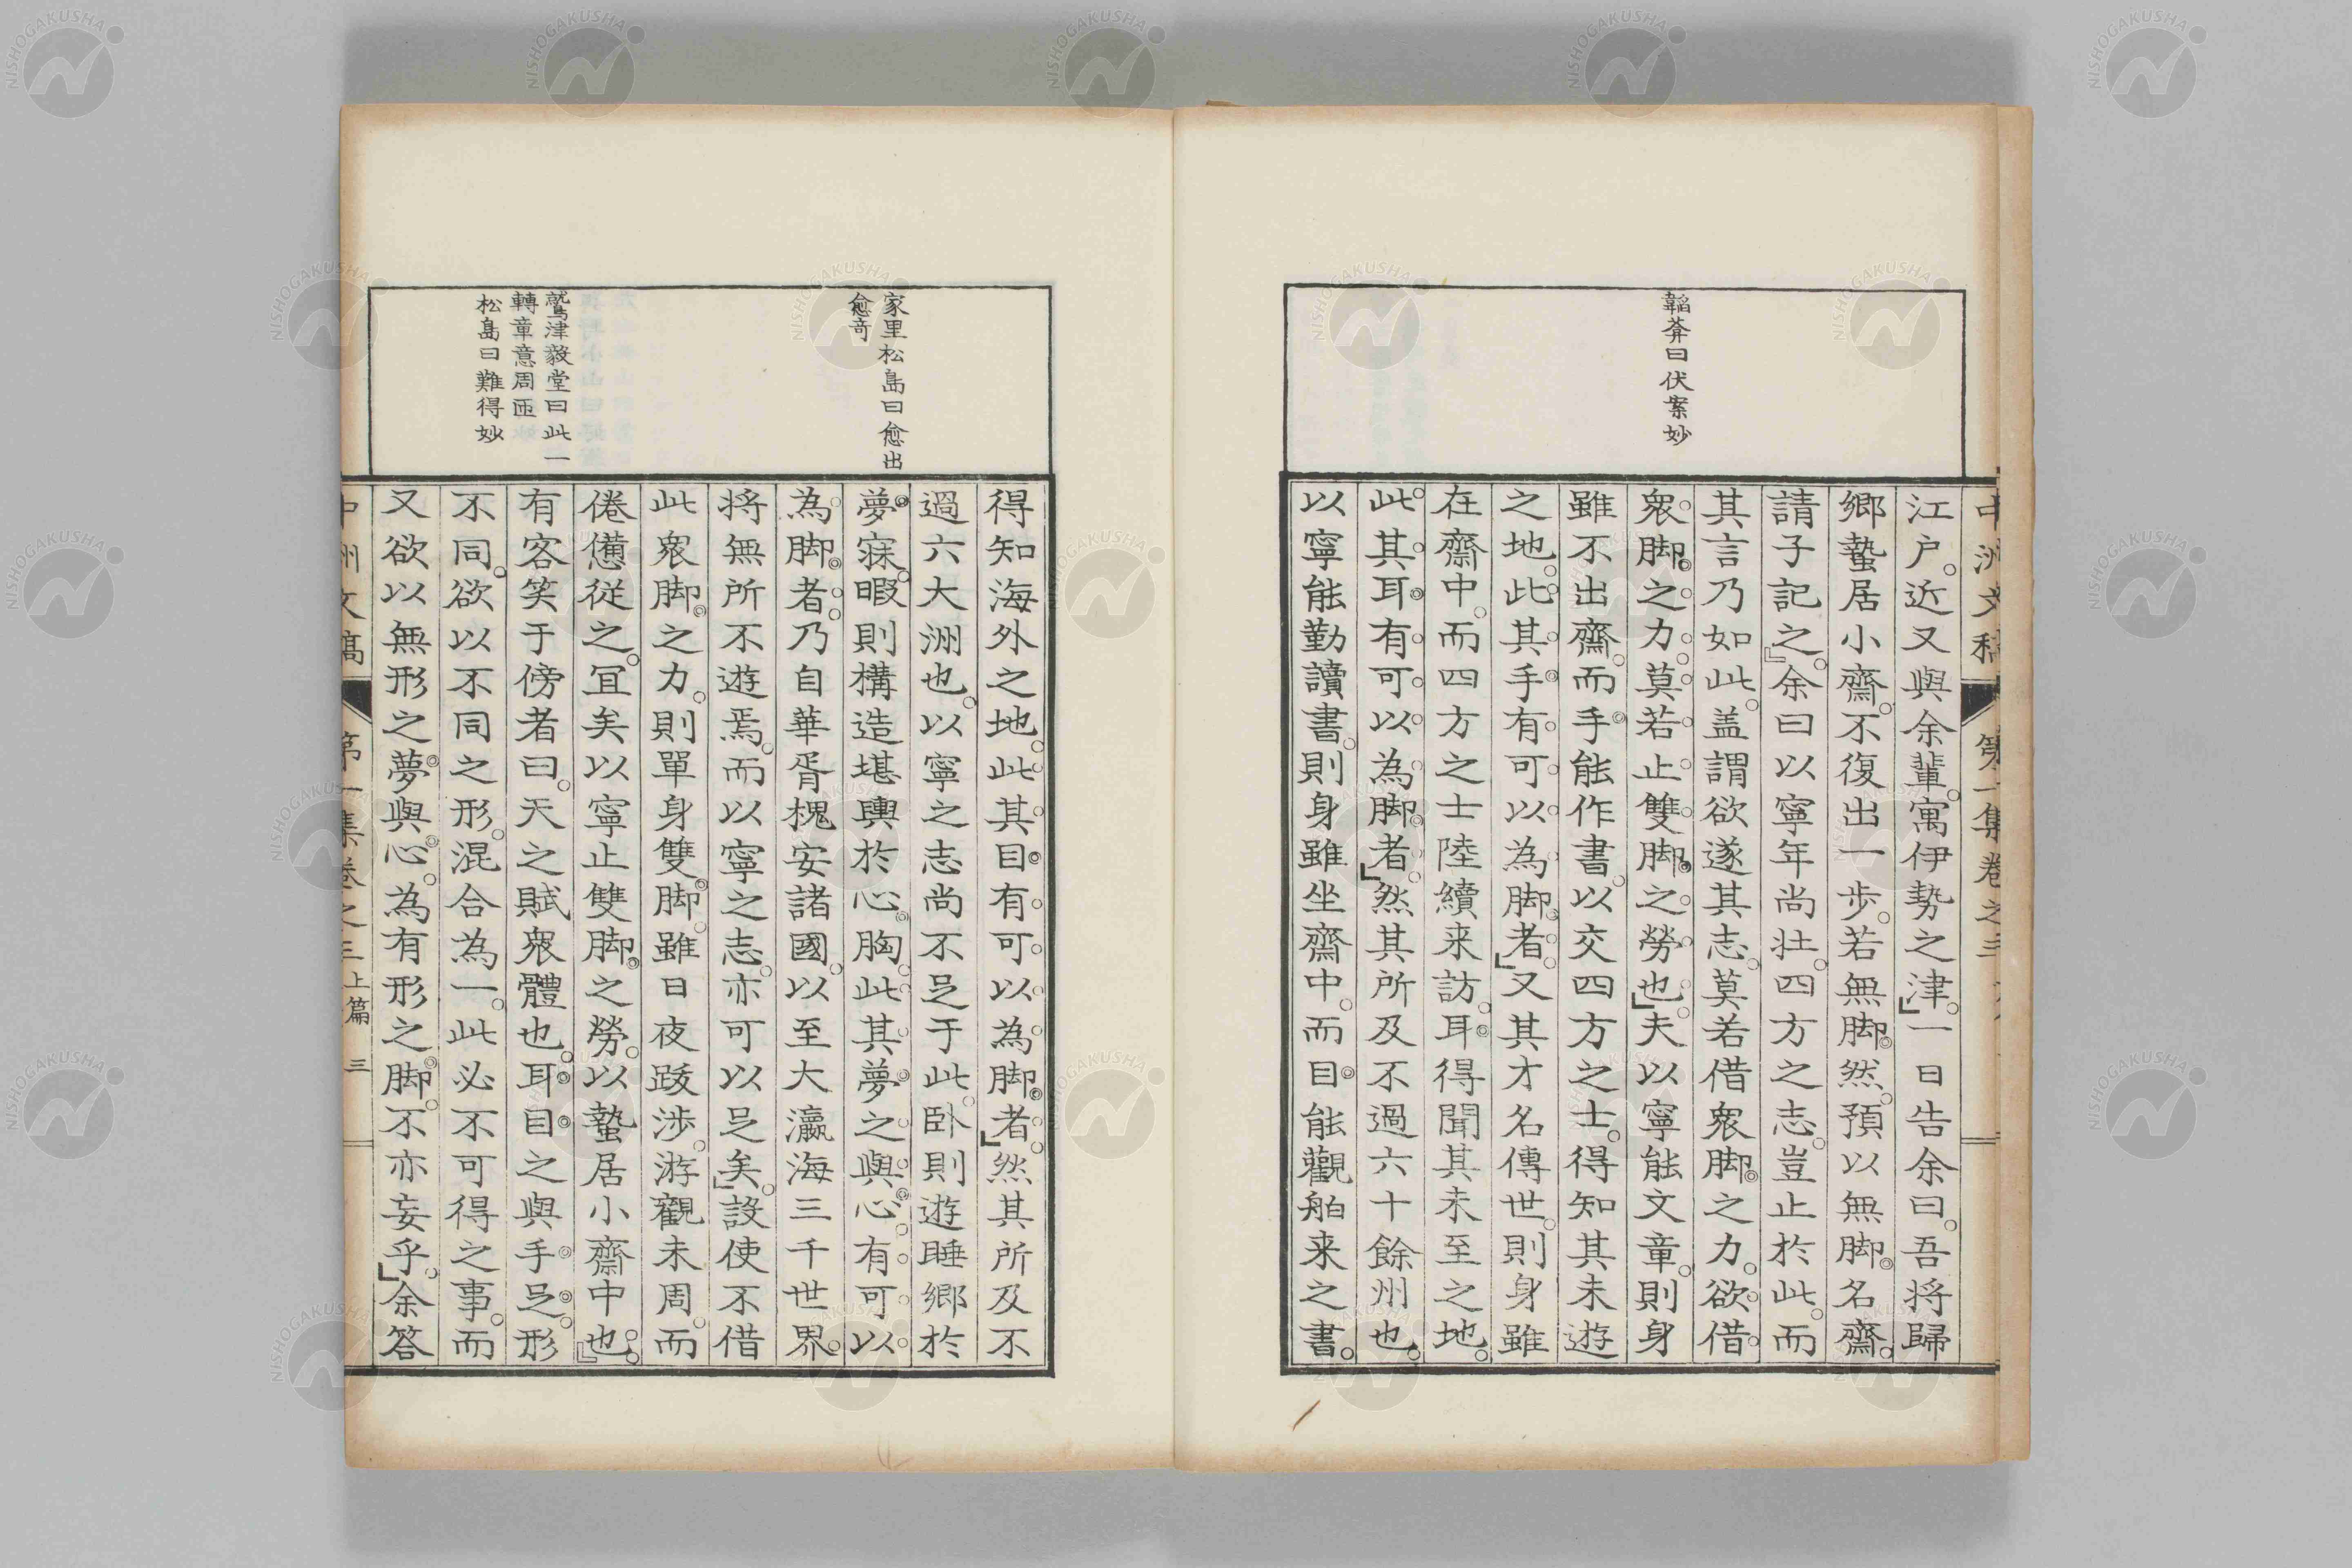 韜葊曰伏案妙
江户近又與余輩寓伊勢之津一日告余曰吾将歸
鄉蟄居小齋不復出一步若無脚然預以無脚名齋
請子記之余曰以寧年尚壯四方之志豈止於此而
其言乃如此盖謂欲遂其志莫若借衆脚之力欲借
衆脚之力莫若止雙脚之勞也夫以寧能文章則身
雖不出齋而手能作書以交四方之士得知其未遊
之地此其手有可以為脚者又其才名傳世則身雖
在齋中而四方之士陸續来訪耳得聞其未至之地
此其耳有可以為脚者然其所及不過六十餘州也
以寧能勤讀書則身雖坐齋中而目能觀舶来之書
家里松島曰愈出
愈奇
鷲津毅堂曰此一
轉章意周匝
松島曰難得妙
得知海外之地此其目有可以為脚者然其所及不
過六大洲也以寧之志尚不足于此卧則遊睡鄉於
夢寐暇則構造堪輿於心胸此其夢之與心有可以
為脚者乃自華胥槐安諸國以至大瀛海三千世界
将無所不遊焉而以寧之志亦可以足矣設使不借
此衆脚之力則單身雙脚雖日夜跋涉游觀未周而
倦憊従之冝矣以寧止雙脚之勞以蟄居小齋中也
有客笑于傍者曰天之賦衆體也耳目之與手足形
不同欲以不同之形混合為一此必不可得之事而
又欲以無形之夢與心為有形之脚不亦妄乎余答
中洲文稿 第一集卷之三上篇 三